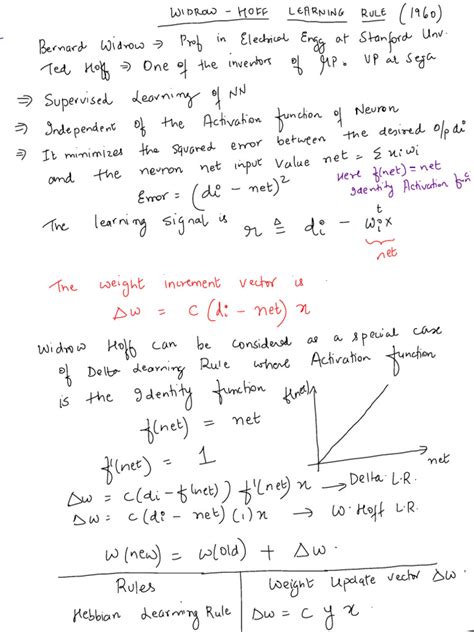 WIDROW - HOFF LEARNING RULE (1960)
Bernard Widrow ⇒ Prof in Electrical Engg at Stanford Unv.
Ted Hoff ⇒ One of the inventors of μP. VP at Sega
⇒ Supervised Learning of NN
⇒ Independent of the Activation function of Neuron
⇒ It minimizes the squared error between the desired o/p di
and the neuron net input value net = Σ xi wi
Here f(net) = net
Identity Activation fn
Error = (di - net)²
The learning signal is r ≜ di - wi^t x
net
The weight increment vector is
Δw = c (di - net) x
Widrow Hoff can be considered as a special case
of Delta Learning Rule where Activation function
is the Identity function
f(net) = net
f(net)
net
f'(net) = 1
Δw = c(di - f(net)) f'(net) x → Delta L.R.
Δw = c (di - net) (1) x → W. Hoff L.R.
w(new) = w(old) + Δw.
Rules Weight Update vector Δw.
Hebbian Learning Rule Δw = c y x.